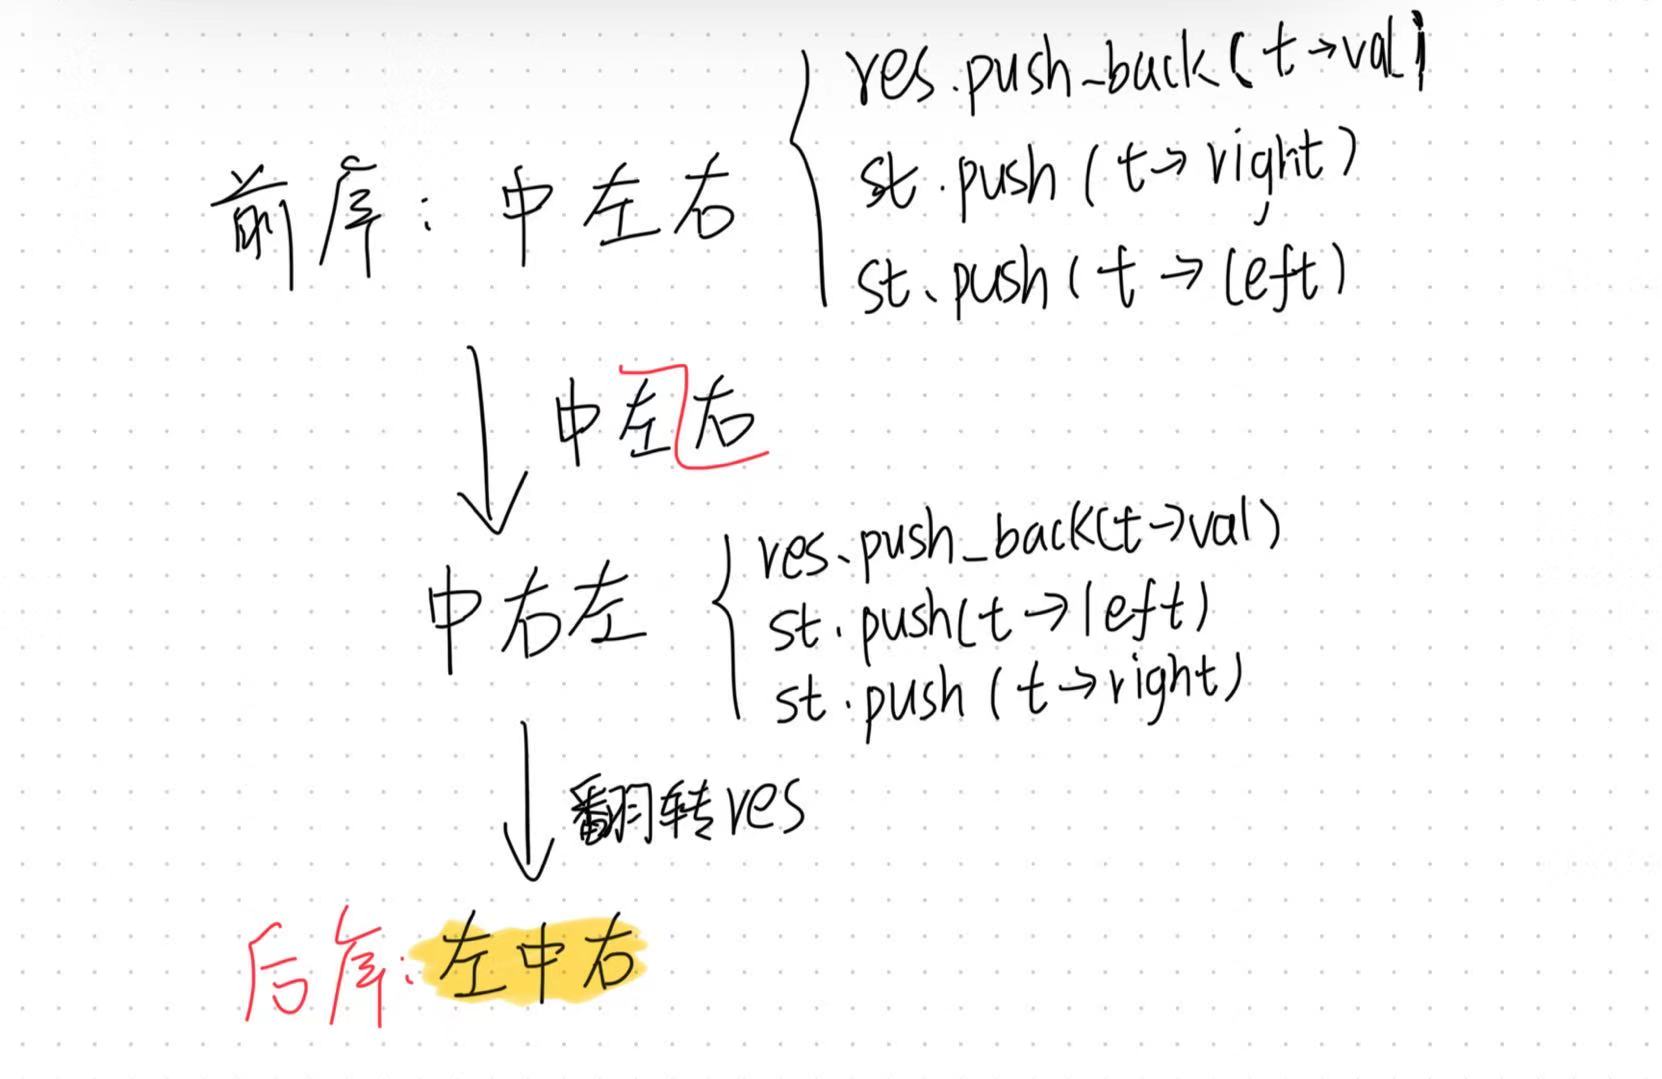 res.push_back(t→val)
前序：中左右
st.push(t→right)
st.push(t→left)
中左右
res.push_back(t→val)
中右左
st.push(t→left)
st.push(t→right)
翻转res
后序：左中右